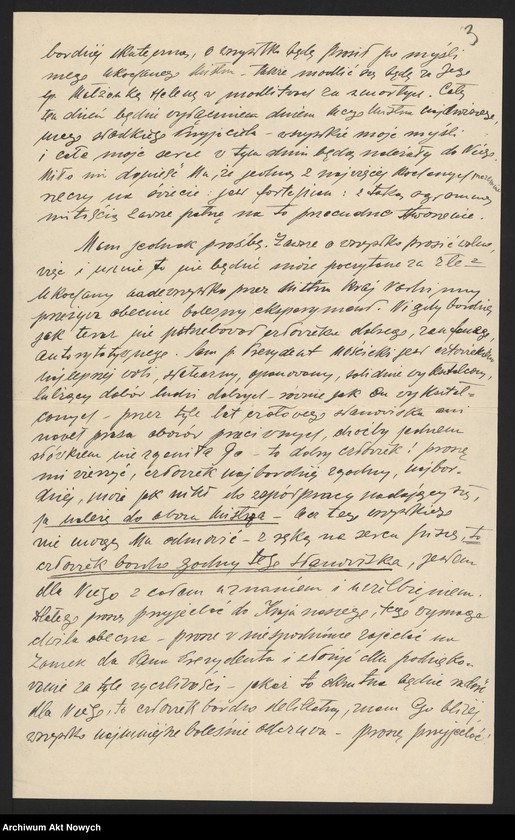 3
bardziej skuteczną, o wszystko będę prosił po myśli
mego ukochanego Mistrza – także modlić się będę za Jego
śp. Małżonkę Helenę w modlitwach za zmarłych. Cały
ten dzień będzie wyłącznie dniem mego Mistrza najdroższego,
mego słodkiego Przyjaciela – wszystkie moje myśli
i całe moje serce w tym dniu będą należały do Niego.
Miło mi donieść Mu, że jedną z najwięcej kochanych
rzeczy na świecie: jest fortepian: z taką ogromną
miłością zawsze patrzę na to przecudne stworzenie.
Mam jednak prośbę. Zawsze o wszystko prosić wolno,
więc i mnie to nie będzie może poczytane za złe =
Ukochany nadewszystko przez Mistrza Kraj
przeżywa obecnie bolesny eksperyment. Nigdy bardziej
jak teraz nie potrzebował człowieka dobrego,
Sam p. Prezydent Mościcki jest człowiekiem
najlepszej woli, opanowany, solidnie wykształcony,
lubiący dobór ludzi dobrych – równie jak On wykształ-
conych – przez tyle lat stanowiska ani
nawet prasa obozów przeciwnych, choćby jednem
słówkiem nie zganiła Go – to dobry człowiek! proszę
mi wierzyć, człowiek najbardziej zgodny, najbar-
dziej, może jak nikt do współpracy nadający się,
ja należę do obozu Mistrza – lecz tego wszystkiego
nie mogę Mu odmówić – z ręką na sercu piszę, to
człowiek bardzo godny tego stanowiska, jestem
dla Niego z całem uznaniem i uwielbieniem.
Dlatego proszę przyjechać do Kraju naszego, tego wymaga
chwila obecna – proszę w niespodziance zajechać na
Zamek do Pana Prezydenta i złożyć Mu podzięko-
wanie za tyle życzliwości – jakaż to okrutna będzie radość
dla Niego, to człowiek bardzo delikatny, znam Go bliżej,
wszystko najmniejsze boleśnie odczuwa – proszę przyjechać!
Archiwum Akt Nowych